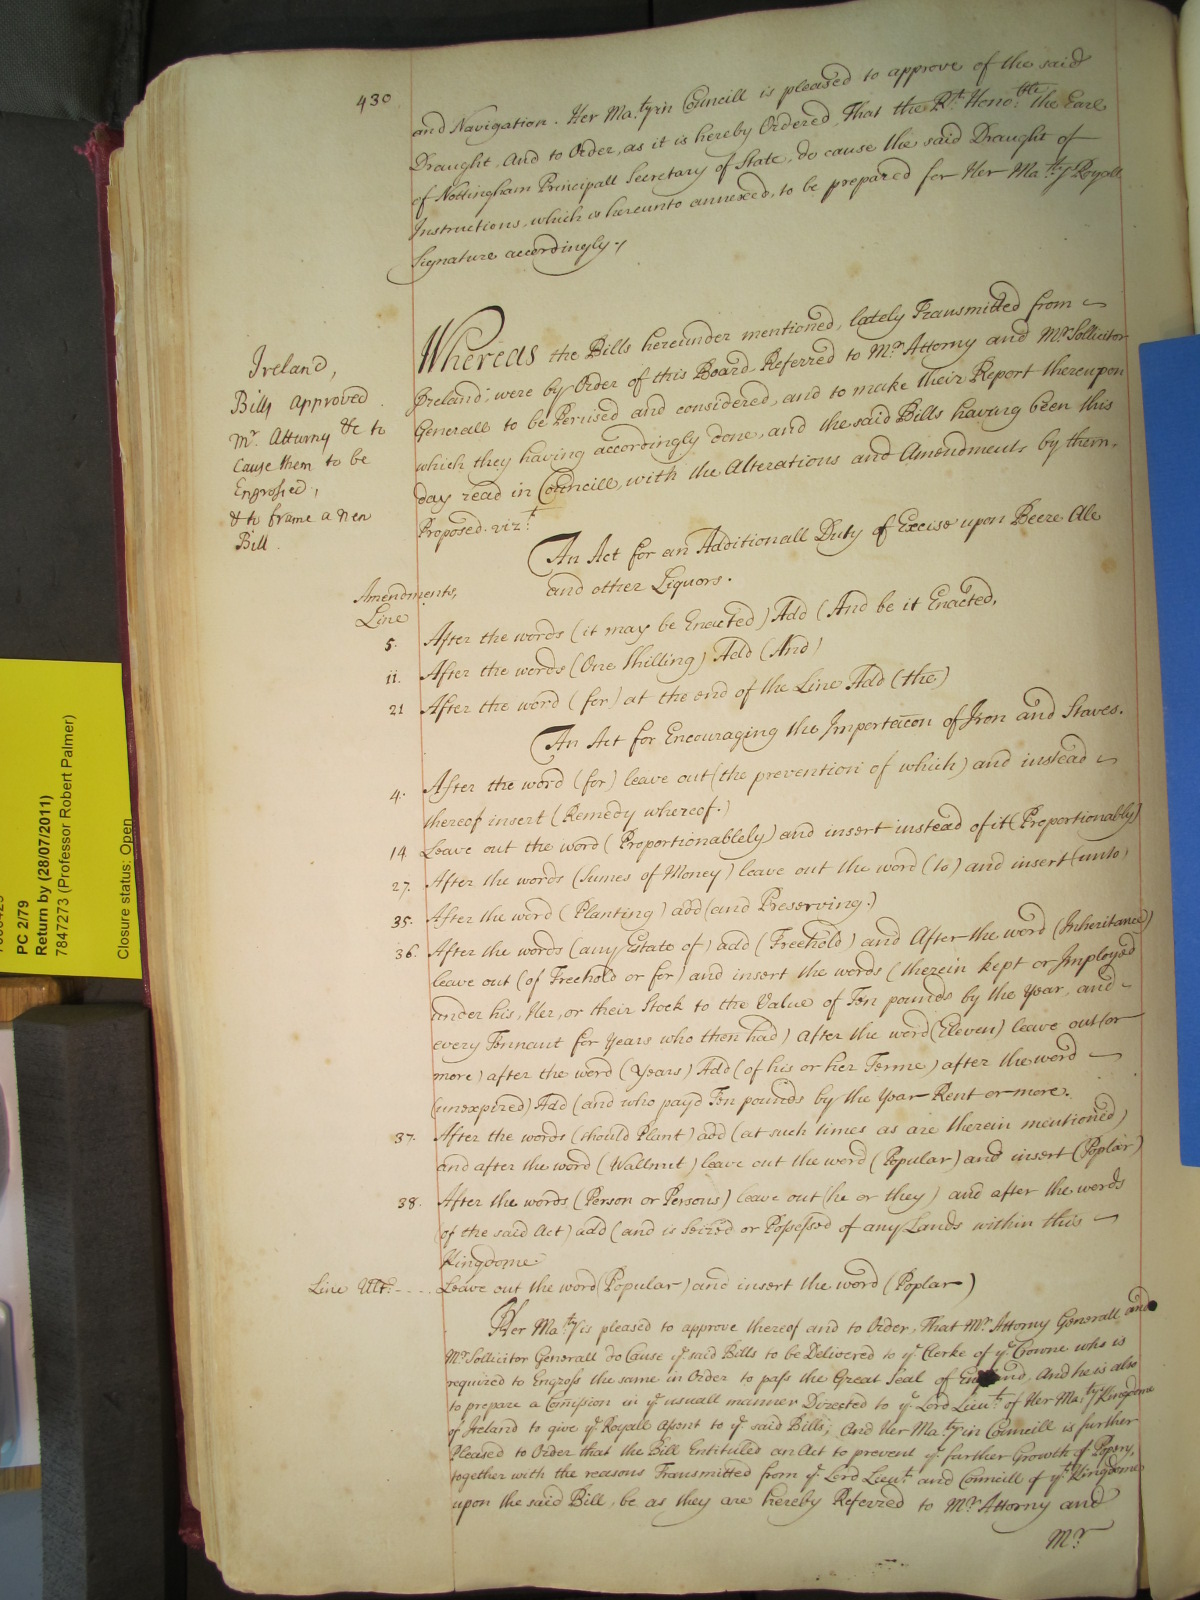 430
and Navigation. Her Ma:ty in Councill is pleased to approve of the said
Draught, And to Order, as it is hereby Ordered, That the Rt. Hono:ble the Earle
of Nottingham Principall Secretary of State, do cause the said Draught of
Instructions, which is hereunto annexed, to be prepared for Her Ma:tys Royall
Signature accordingly.
Ireland,
Bills approved
Mr. Atturny &c to
Cause them to be
Engrossed,
& to frame a new
Bill.
Whereas the Bills hereunder mentioned, lately Transmitted from
Ireland, were by Order of this Board Referred to Mr. Attorny and Mr. Sollicitor
Generall to be Perused and considered, and to make their Report thereupon
which they having accordingly done, and the said Bills having been this
day read in Councill, with the Alterations and Amendments by them
Proposed. vizt.
An Act for an Additionall Duty of Excise upon Beere Ale
and other Liquors.
Amendments,
Line
5. After the words (it may be Enacted) Add (And be it Enacted,
11. After the words (One Shilling) Add (And)
21 After the word (for) at the end of the Line Add (the)
An Act for Encouraging the Importacon of Iron and Staves.
4. After the word (for) leave out (the prevention of which) and instead
thereof insert (Remedy whereof.)
14 Leave out the word (Proportionablely) and insert instead of it (Proportionably)
27. After the words (Sumes of Money) leave out the word (to) and insert (unto)
35. After the word (Planting) add (and Preserving.)
36. After the words (any Estate of) add (Freehold) and After the word (Inheritance)
leave out (of Freehold or for) and insert the words (therein kept or Imployed
under his, Her, or their Stock to the Value of Ten pounds by the Year, and
every Tennant for Years who then had) after the word (Eleven) leave out (or
more) after the word (Years) Add (of his or her Terme) after the word
(unexpired) Add (and who payd Ten pounds by the Year Rent or more.
37. After the words (should Plant) add (at such times as are therein mentioned)
and after the word (Wallnut) leave out the word (Popular) and insert (Poplar)
38. After the words (Person or Persons) leave out (he or they) and after the words
(of the said Act) add (and is Seized or Possessed of any Lands within this
Kingdome
Line Ult: Leave out the word (Popular) and insert the word (Poplar)
Her Ma:ty is pleased to approve thereof and to Order, That Mr. Attorny Generall and
Mr. Sollicitor Generall do Cause ye. said Bills to be Delivered to ye. Clerke of ye. Crowne who is
required to Engross the same in Order to pass the Great Seal of England, And he is also
to prepare a Comission in ye. usuall manner Directed to ye. Lord Lieut. of Her Ma:tys Kingdome
of Ireland to give ye. Royall Assent to ye. said Bills; And Her Ma:ty in Councill is further
Pleased to Order that the Bill Entituled an Act to prevent ye. further Growth of Popery,
together with the reasons Transmitted from ye. Lord Lieut. and Councill of yt. Kingdome
upon the said Bill, be as they are hereby Referred to Mr. Attorny and
Mr.
PC 2/79
Return by (28/07/2011)
7847273 (Professor Robert Palmer)
Closure status: Open